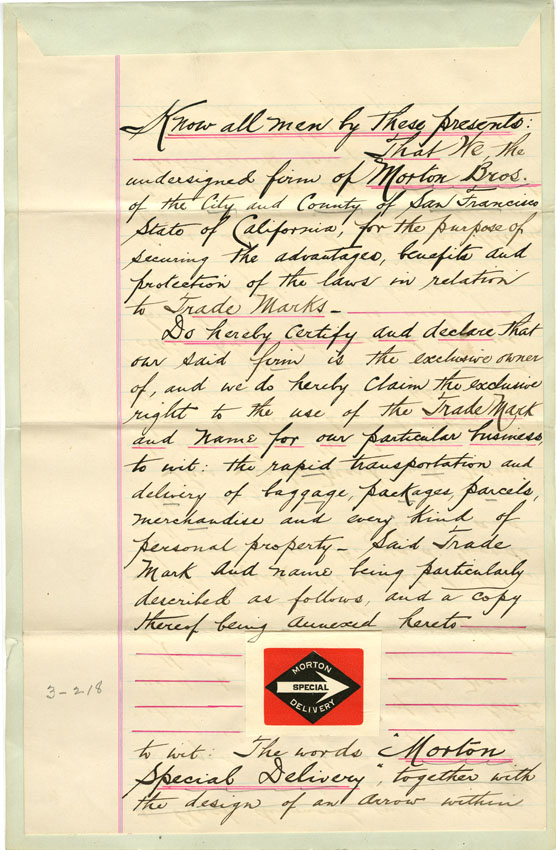 Know all men by these presents:
That We the
undersigned firm of Morton Bros.
of the City and County of San Francisco
State of California, for the purpose of
securing the advantages, benefits and
protection of the laws in relation
to Trade Marks.—
Do hereby certify and declare that
our said firm is the exclusive owner
of, and we do hereby claim the exclusive
right to the use of the Trade Mark
and name for our particular business,
to wit: the rapid transportation and
delivery of baggage, packages, parcels,
merchandise and every kind of
personal property— Said Trade
Mark and name being particularly
described as follows, and a copy
thereof being annexed hereto
MORTON
SPECIAL
DELIVERY
3-218
to wit: The words "Morton
Special Delivery", together with
the design of an arrow within